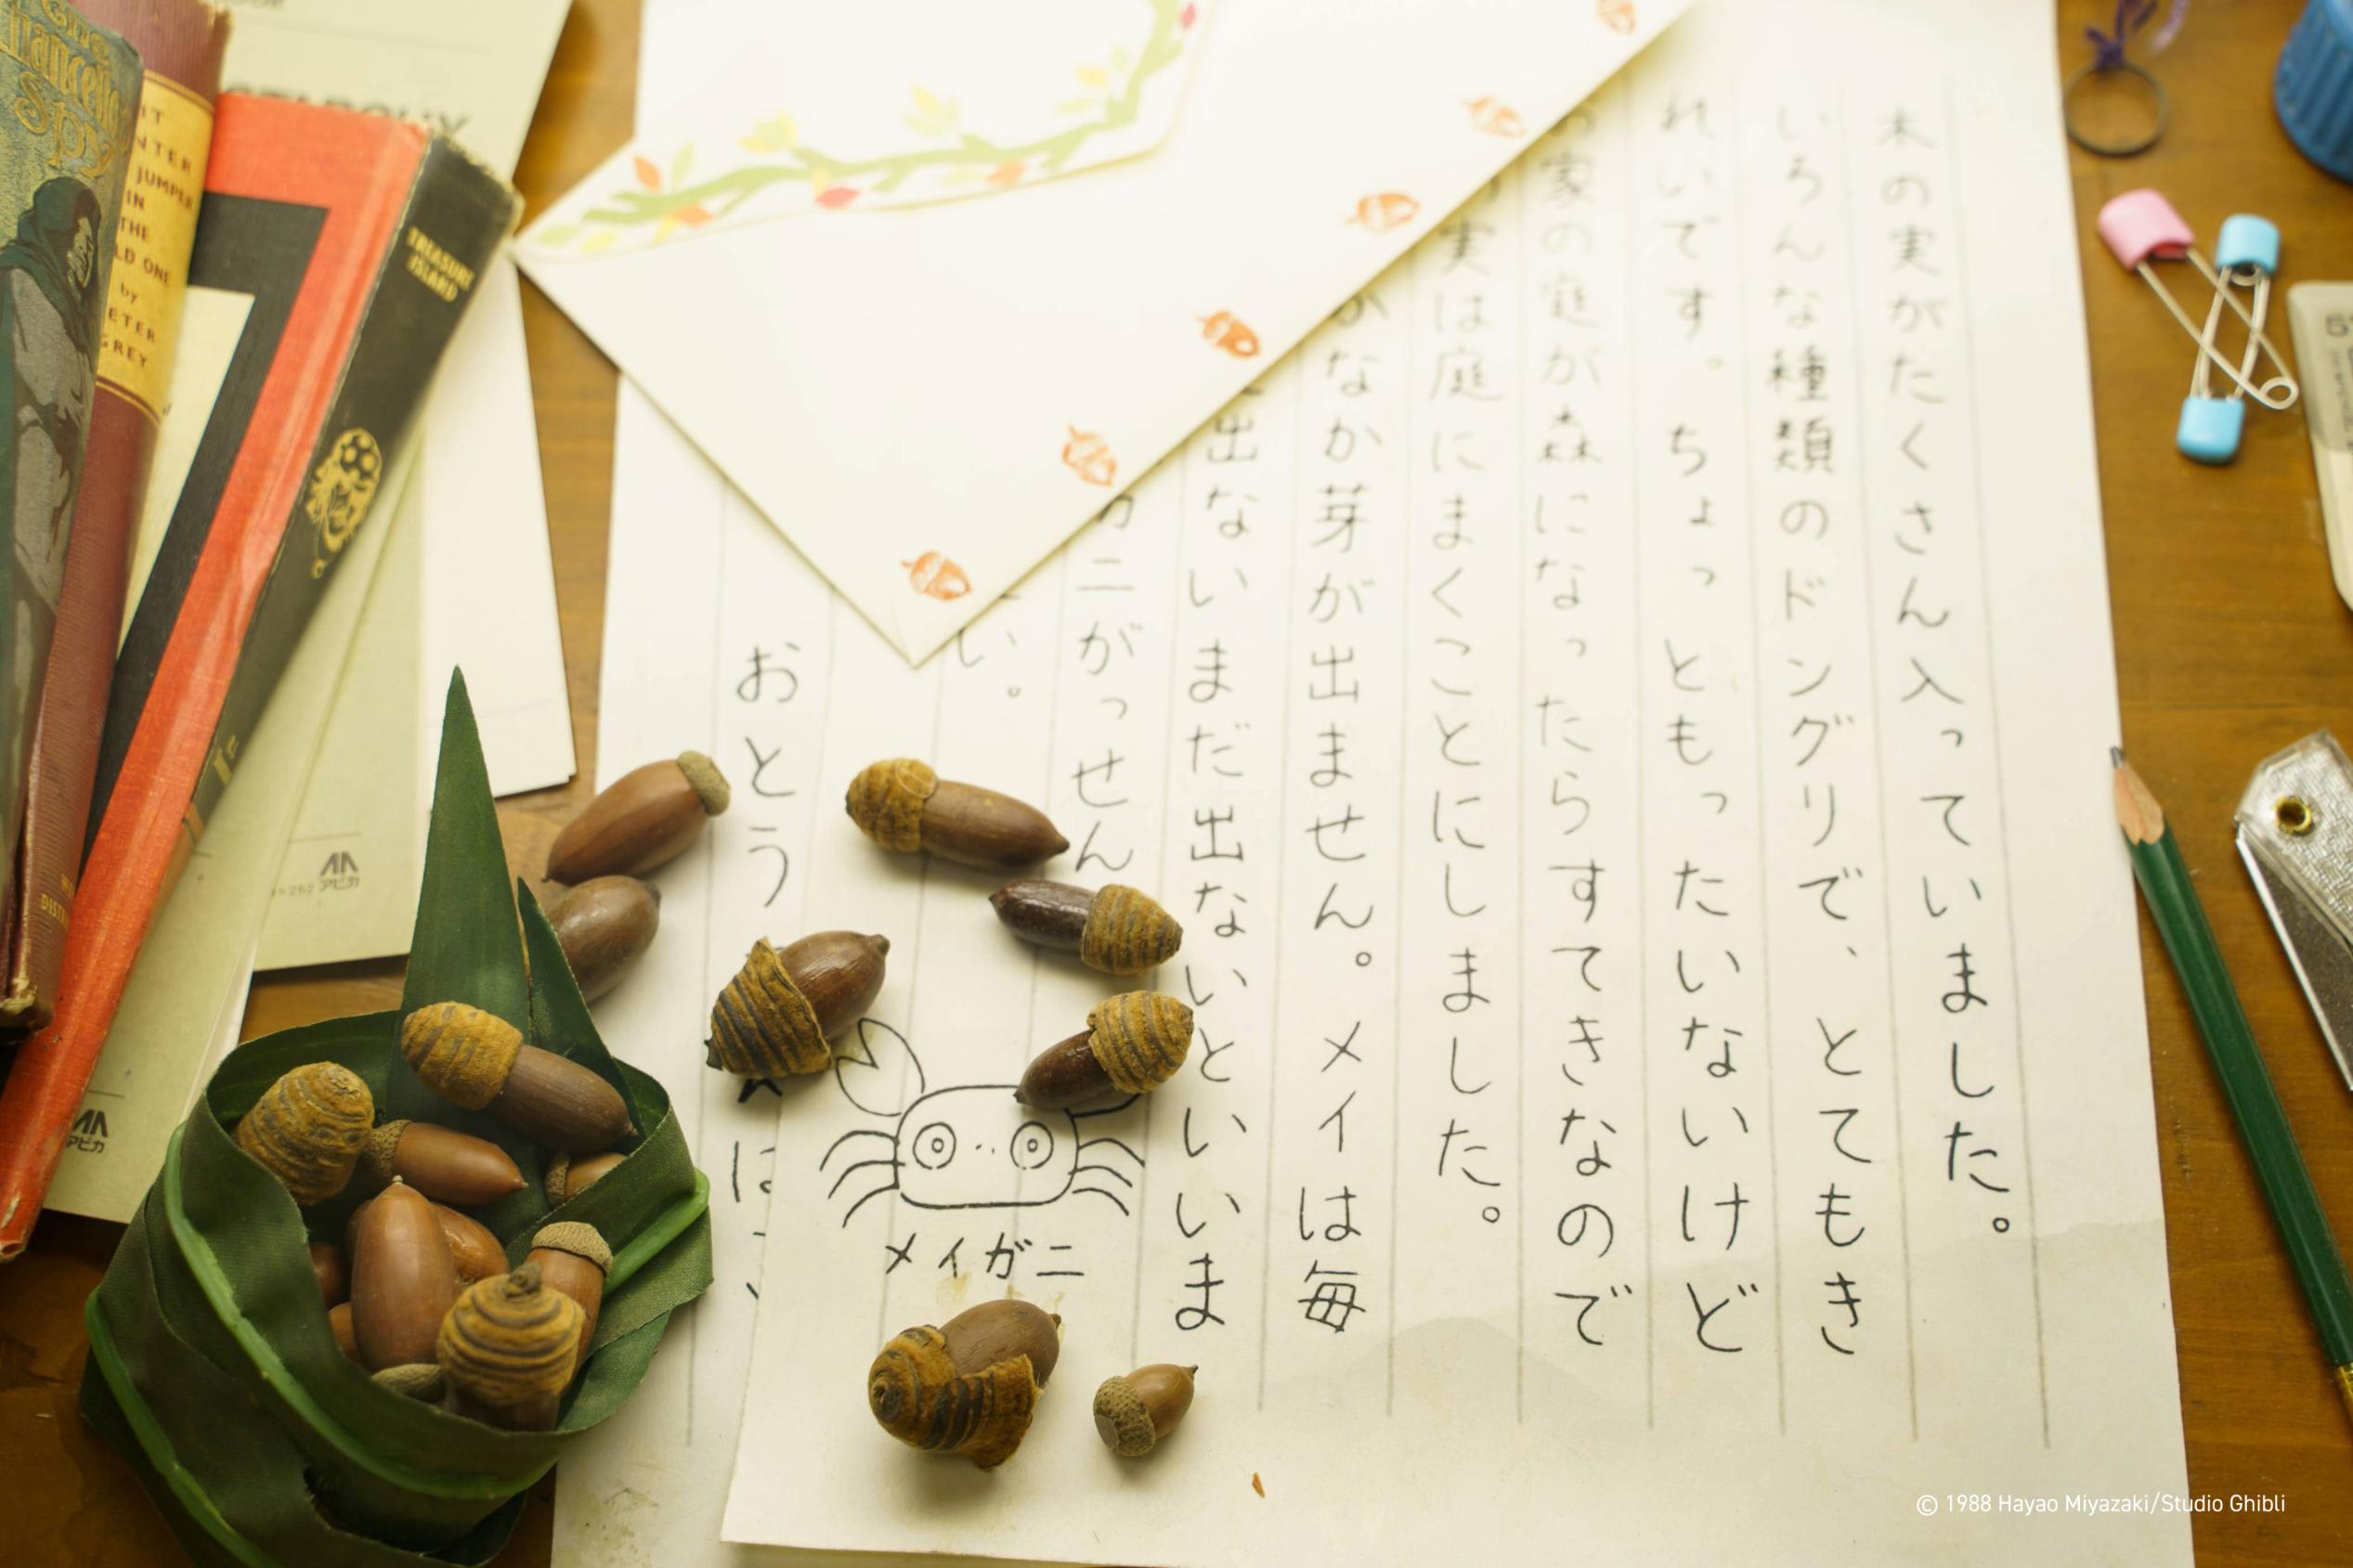 木の実がたくさん入っていました。
いろんな種類のドングリで、とてもき
れいです。ちょっともったいないけど
家の庭が森になったらすてきなので
実は庭にまくことにしました。
なかなか芽が出ません。メイは毎
出ないまだ出ないといいま
カニがっせん
い。
おとう
メイガニ
TREASURE
ISLAND
Spy
JUMPER
IN
THE
by
GREY
アピカ
アピカ
© 1988 Hayao Miyazaki/Studio Ghibli